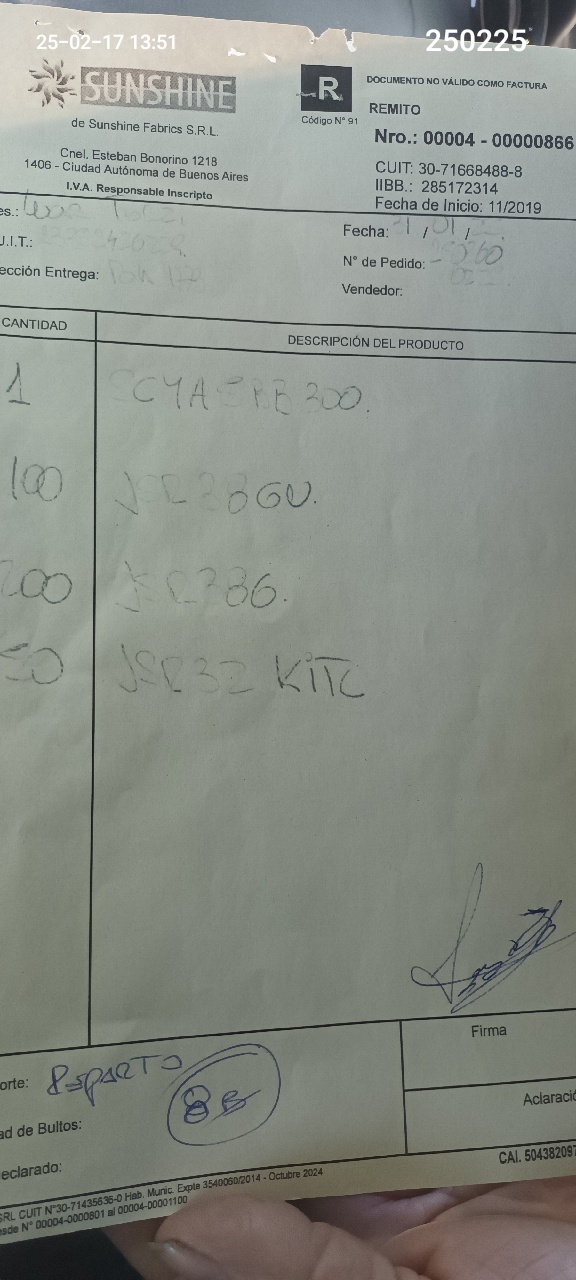 25-02-17 13:51
250225
SUNSHINE
de Sunshine Fabrics S.R.L.
Cnel. Esteban Bonorino 1218
1406 - Ciudad Autónoma de Buenos Aires
I.V.A. Responsable Inscripto
R
Código N° 91
DOCUMENTO NO VÁLIDO COMO FACTURA
REMITO
Nro.: 00004 - 00000866
CUIT: 30-71668488-8
IIBB.: 285172314
Fecha de Inicio: 11/2019
es.:
U.I.T.:
ección Entrega:
Fecha: 31 / 01 /
N° de Pedido:
Vendedor:
CANTIDAD DESCRIPCIÓN DEL PRODUCTO
1 300.
100 JSR38GV.
200 JSR386.
50 JSR32 KITC
orte: REPARTO
ad de Bultos: 8B
eclarado:
Firma
Aclaració
CAI. 504382097
SRL CUIT N°30-71435636-0 Hab. Munic. Expte 3540060/2014 - Octubre 2024
esde N° 00004-0000801 al 00004-00001100